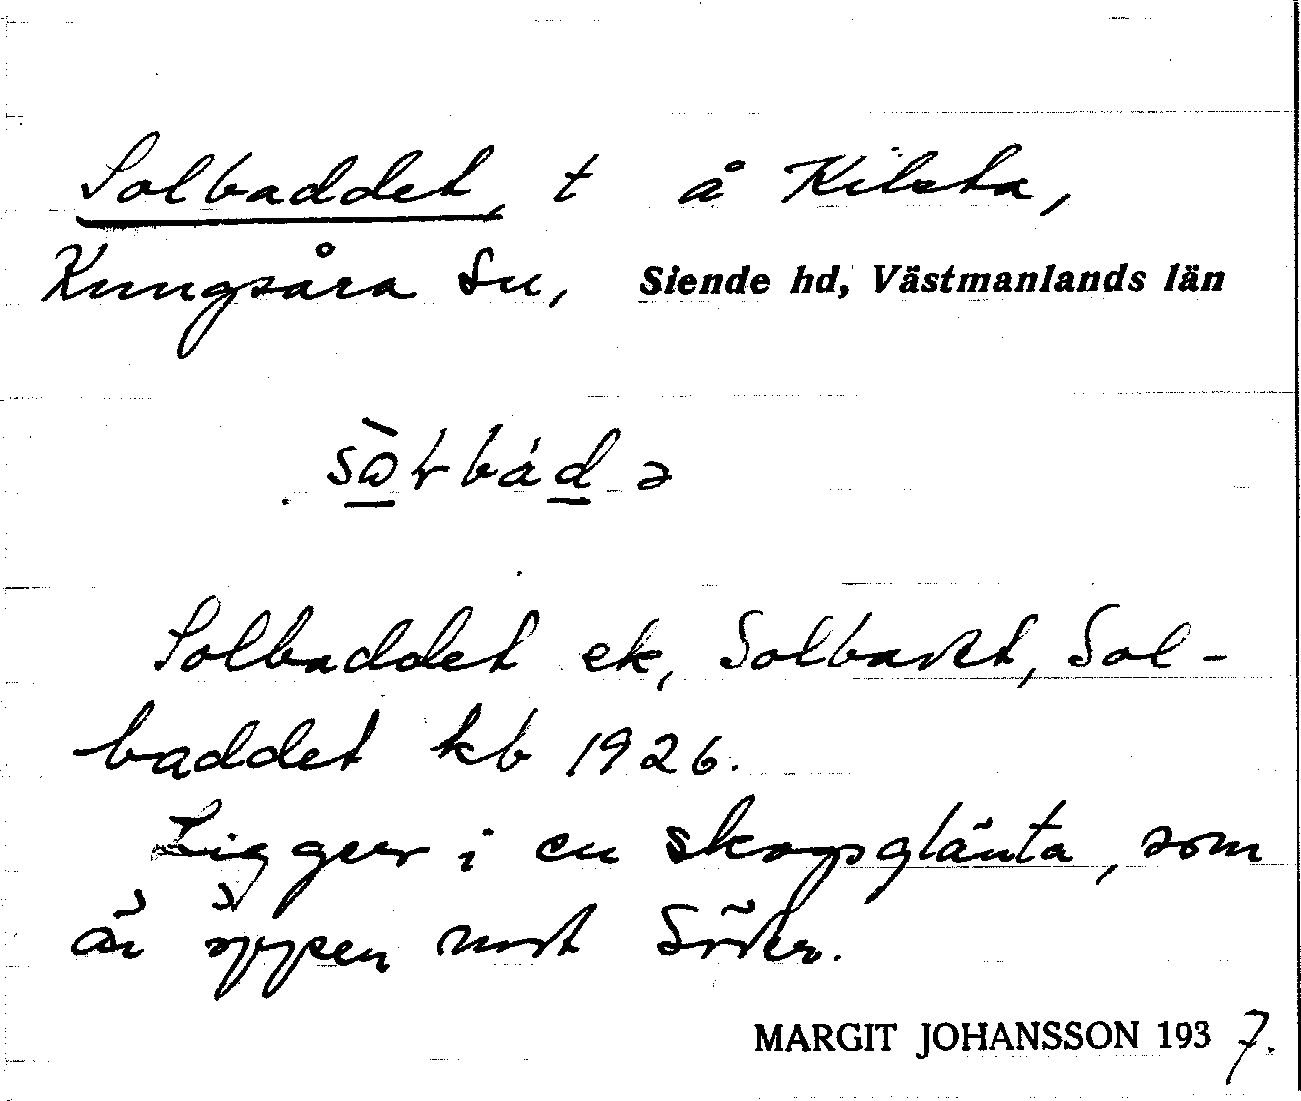 Solbaddet, t å Kilsta,
Kungsåra sn, Siende hd, Västmanlands län
Solbaddet ek, Solbadet, Sol-
baddet kb 1926.
Ligger i en skogsglänta, som
är öppen mot Söder.
MARGIT JOHANSSON 1937.